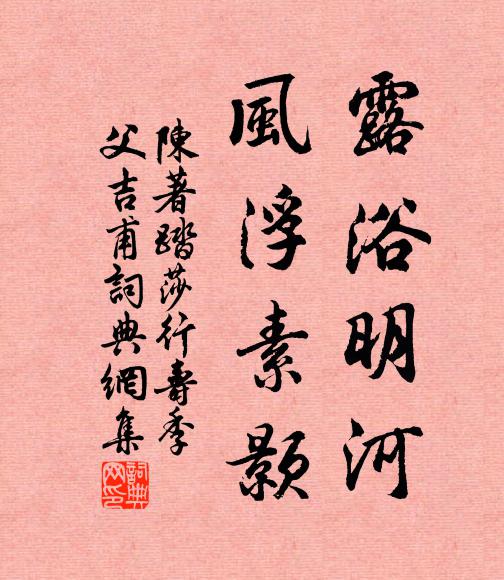 露浴明河
風浮素顥
陳著踏莎行壽季
父吉甫詞典網集
詞典网印